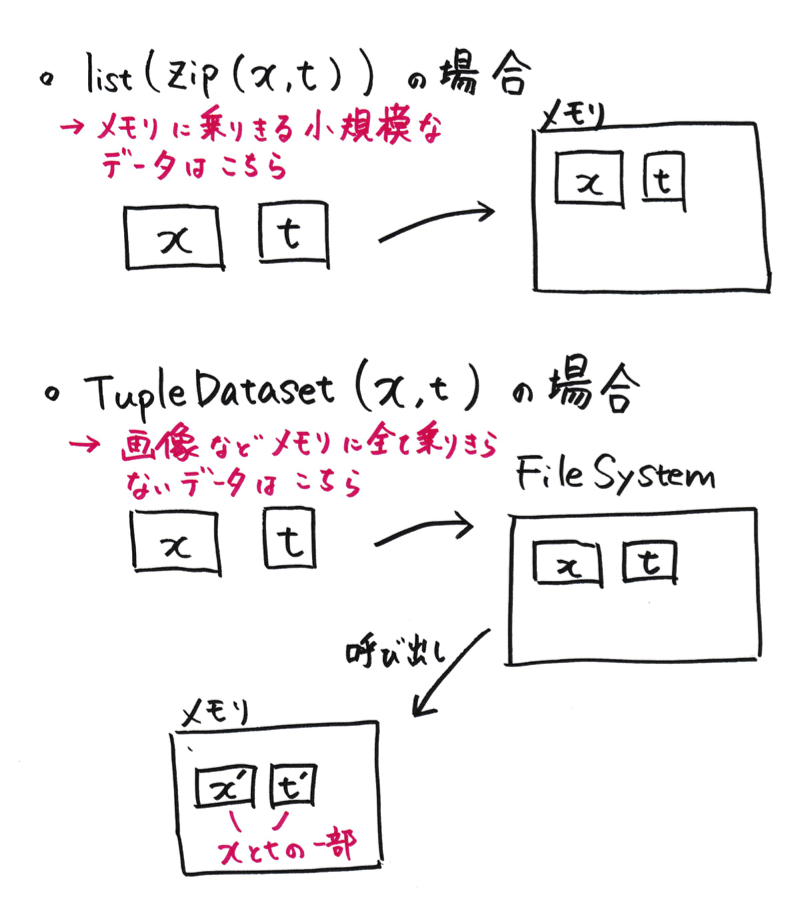 。 list(zip(x,t)) の場合
→ メモリに乗りきる小規模な
データはこちら
メモリ
x t
x t
。 TupleDataset (x,t) の場合
→ 画像などメモリに全て乗りきら
ないデータはこちら
FileSystem
x t
x t
呼び出し
メモリ
x' t'
xとtの一部